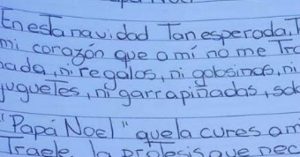 En esta navidad Tan esperada,
mi corazón que a mí no me Tra
nada, ni regalos, ni golosinas, ni
juguetes, ni garrapiñadas, solo
"Papá Noel" que la cures a mi
Traele la protesis que nece